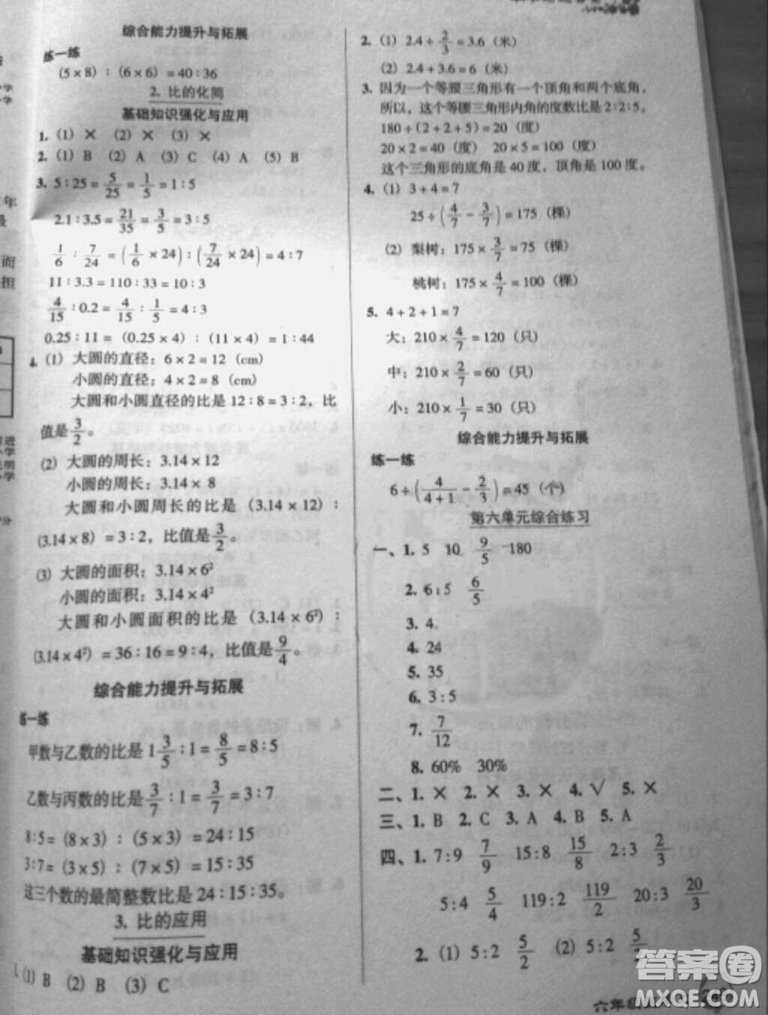 综合能力提升与拓展
练一练
(5×8):(6×6)=40:36
2. 比的化简
基础知识强化与应用
1. (1) × (2) × (3) ×
(1) B (2) A (3) C (4) A (5) B
3. 5:25=5/25=1/5=1:5
2.1:3.5=21/35=3/5=3:5
1/6:7/24=(1/6×24):(7/24×24)=4:7
11:3.3=110:33=10:3
4/15:0.2=4/15:1/5=4:3
0.25:11=(0.25×4):(11×4)=1:44
4. (1) 大圆的直径:6×2=12(cm)
小圆的直径:4×2=8(cm)
大圆和小圆直径的比是12:8=3:2,比
值是3/2。
(2) 大圆的周长:3.14×12
小圆的周长:3.14×8
大圆和小圆周长的比是(3.14×12):
(3.14×8)=3:2,比值是3/2。
(3) 大圆的面积:3.14×6²
小圆的面积:3.14×4²
大圆和小圆面积的比是(3.14×6²):
(3.14×4²)=36:16=9:4,比值是9/4。
综合能力提升与拓展
练一练
甲数与乙数的比是1 3/5:1=8/5=8:5
乙数与丙数的比是3/7:1=3/7=3:7
8:5=(8×3):(5×3)=24:15
3:7=(3×5):(7×5)=15:35
这三个数的最简整数比是24:15:35。
3. 比的应用
基础知识强化与应用
1. (1) B (2) B (3) C
2. (1) 2.4÷2/3=3.6(米)
(2) 2.4+3.6=6(米)
3. 因为一个等腰三角形有一个顶角和两个底角,
所以,这个等腰三角形内角的度数比是2:2:5。
180÷(2+2+5)=20(度)
20×2=40(度) 20×5=100(度)
这个三角形的底角是40度,顶角是100度。
4. (1) 3+4=7
25÷(4/7-3/7)=175(棵)
(2) 梨树:175×3/7=75(棵)
桃树:175×4/7=100(棵)
5. 4+2+1=7
大:210×4/7=120(只)
中:210×2/7=60(只)
小:210×1/7=30(只)
综合能力提升与拓展
练一练
6÷(4/(4+1)-2/3)=45(个)
第六单元综合练习
一、1. 5 10 9/5 180
2. 6:5 6/5
3. 4
4. 24
5. 35
6. 3:4
7. 7/12
8. 60% 30%
二、1. × 2. × 3. × 4. √ 5. ×
三、1. B 2. C 3. A 4. B 5. A
四、1. 7:9 7/9 15:8 15/8 2:3 2/3
5:4 5/4 119:2 119/2 20:3 20/3
2. (1) 5:2 5/2 (2) 5:2 5/2
六年级
答案圈